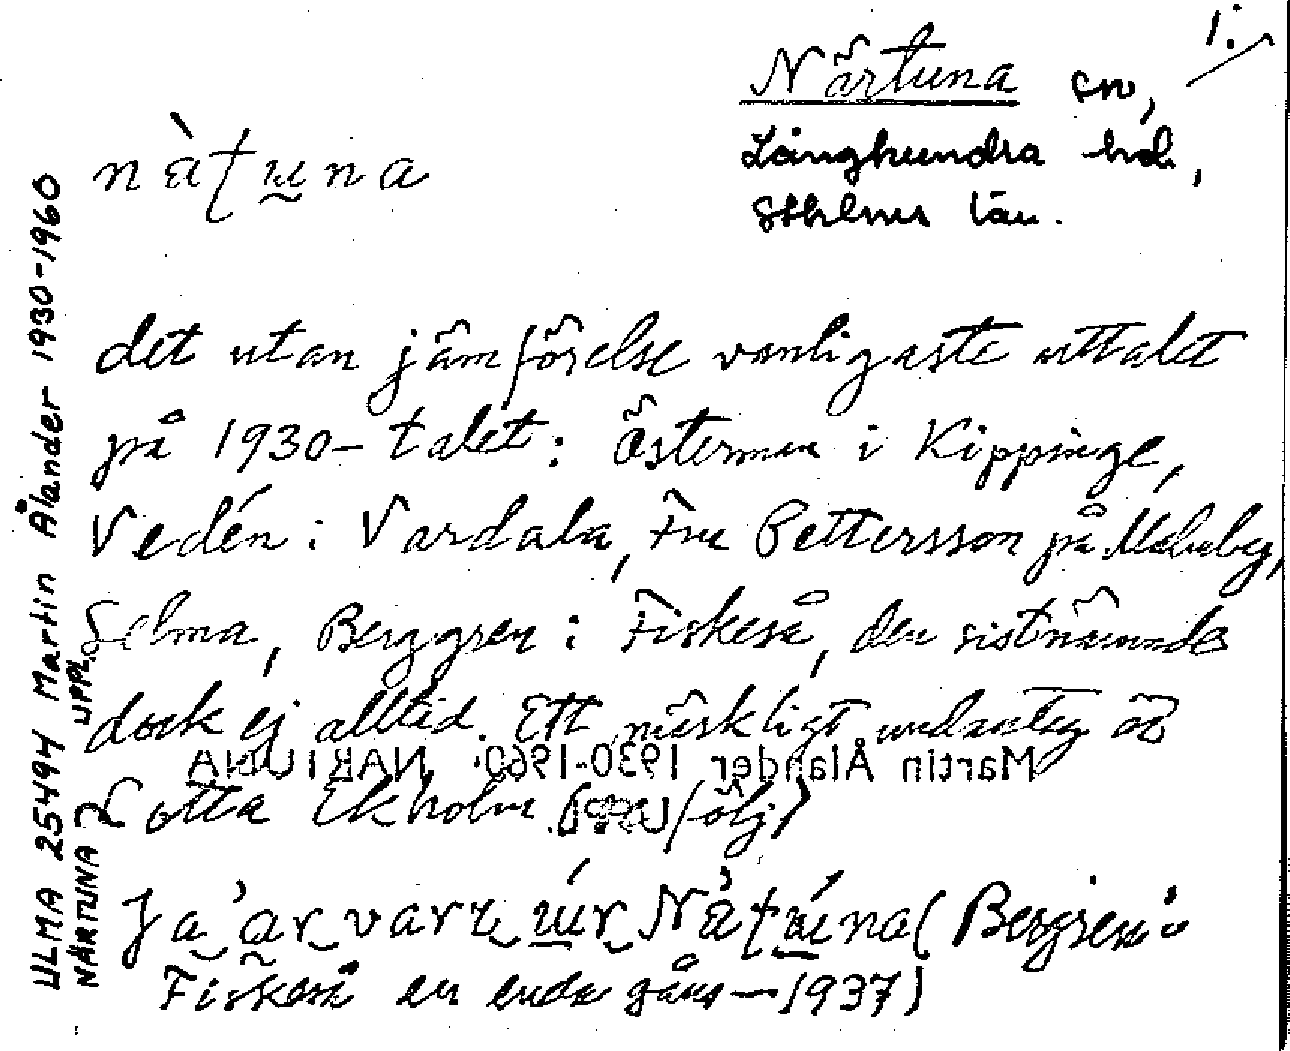 1.
Närtuna sn,
Långhundra hd,
Sthlms län.
nàtuna
det utan jämförelse vanligaste uttalet
på 1930-talet: Österman i Kippinge,
Vedén i Vardala, Fru Pettersson på
Selma, Berggren i Fiskeså, den sistnämnde
dock ej alltid. Ett märkligt undantag är
Lotta Ekholm (se följ)
Ja ar varı ur Nätuna (Bergren i
Fiskeså en enda gång — 1937)
ULMA 25494 Martin Ålander 1930-1960
NÄRTUNA UPPL.
Martin Ålander 1930-1960. NÄRTUNA